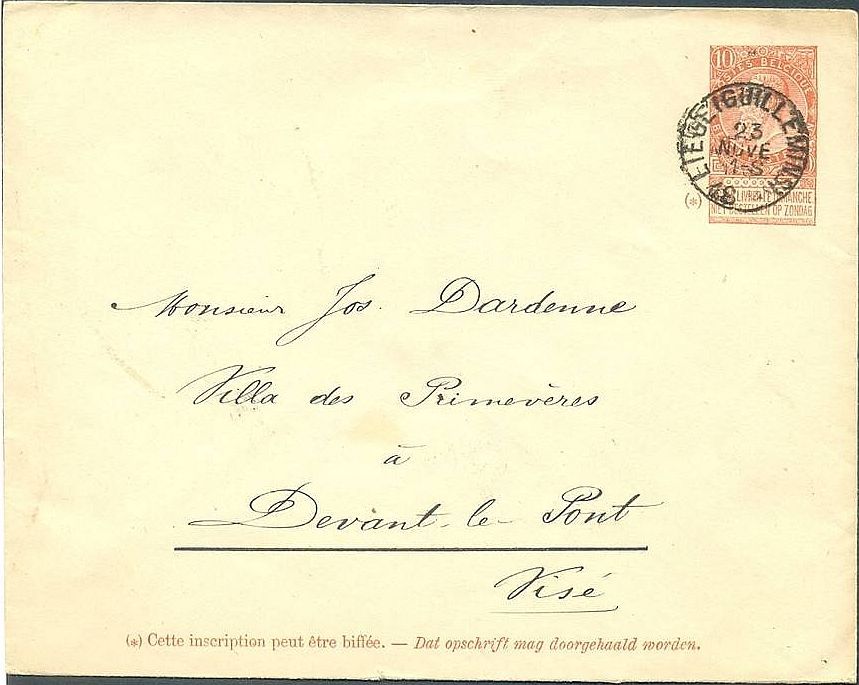 10
LIEGE (GUILLEMINS)
23
NOVE
11-S
18
(*)
NE PAS LIVRER LE DIMANCHE
NIET BESTELLEN OP ZONDAG
Monsieur Jos. Dardenne
Villa des Primevères
à
Devant-le-Pont
Visé
(*) Cette inscription peut être biffée. — Dat opschrift mag doorgehaald worden.